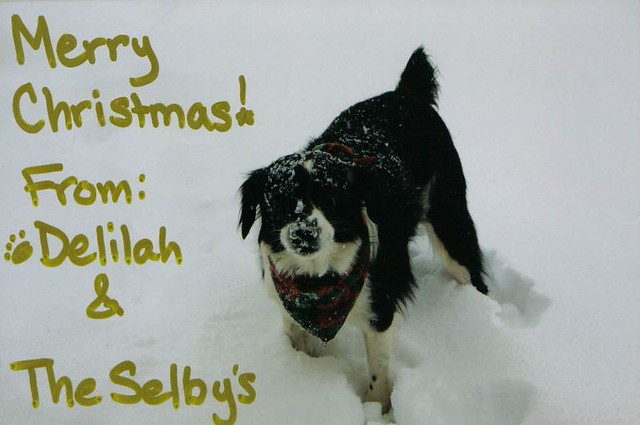 Merry
Christmas!
From:
Delilah
&
The Selby's